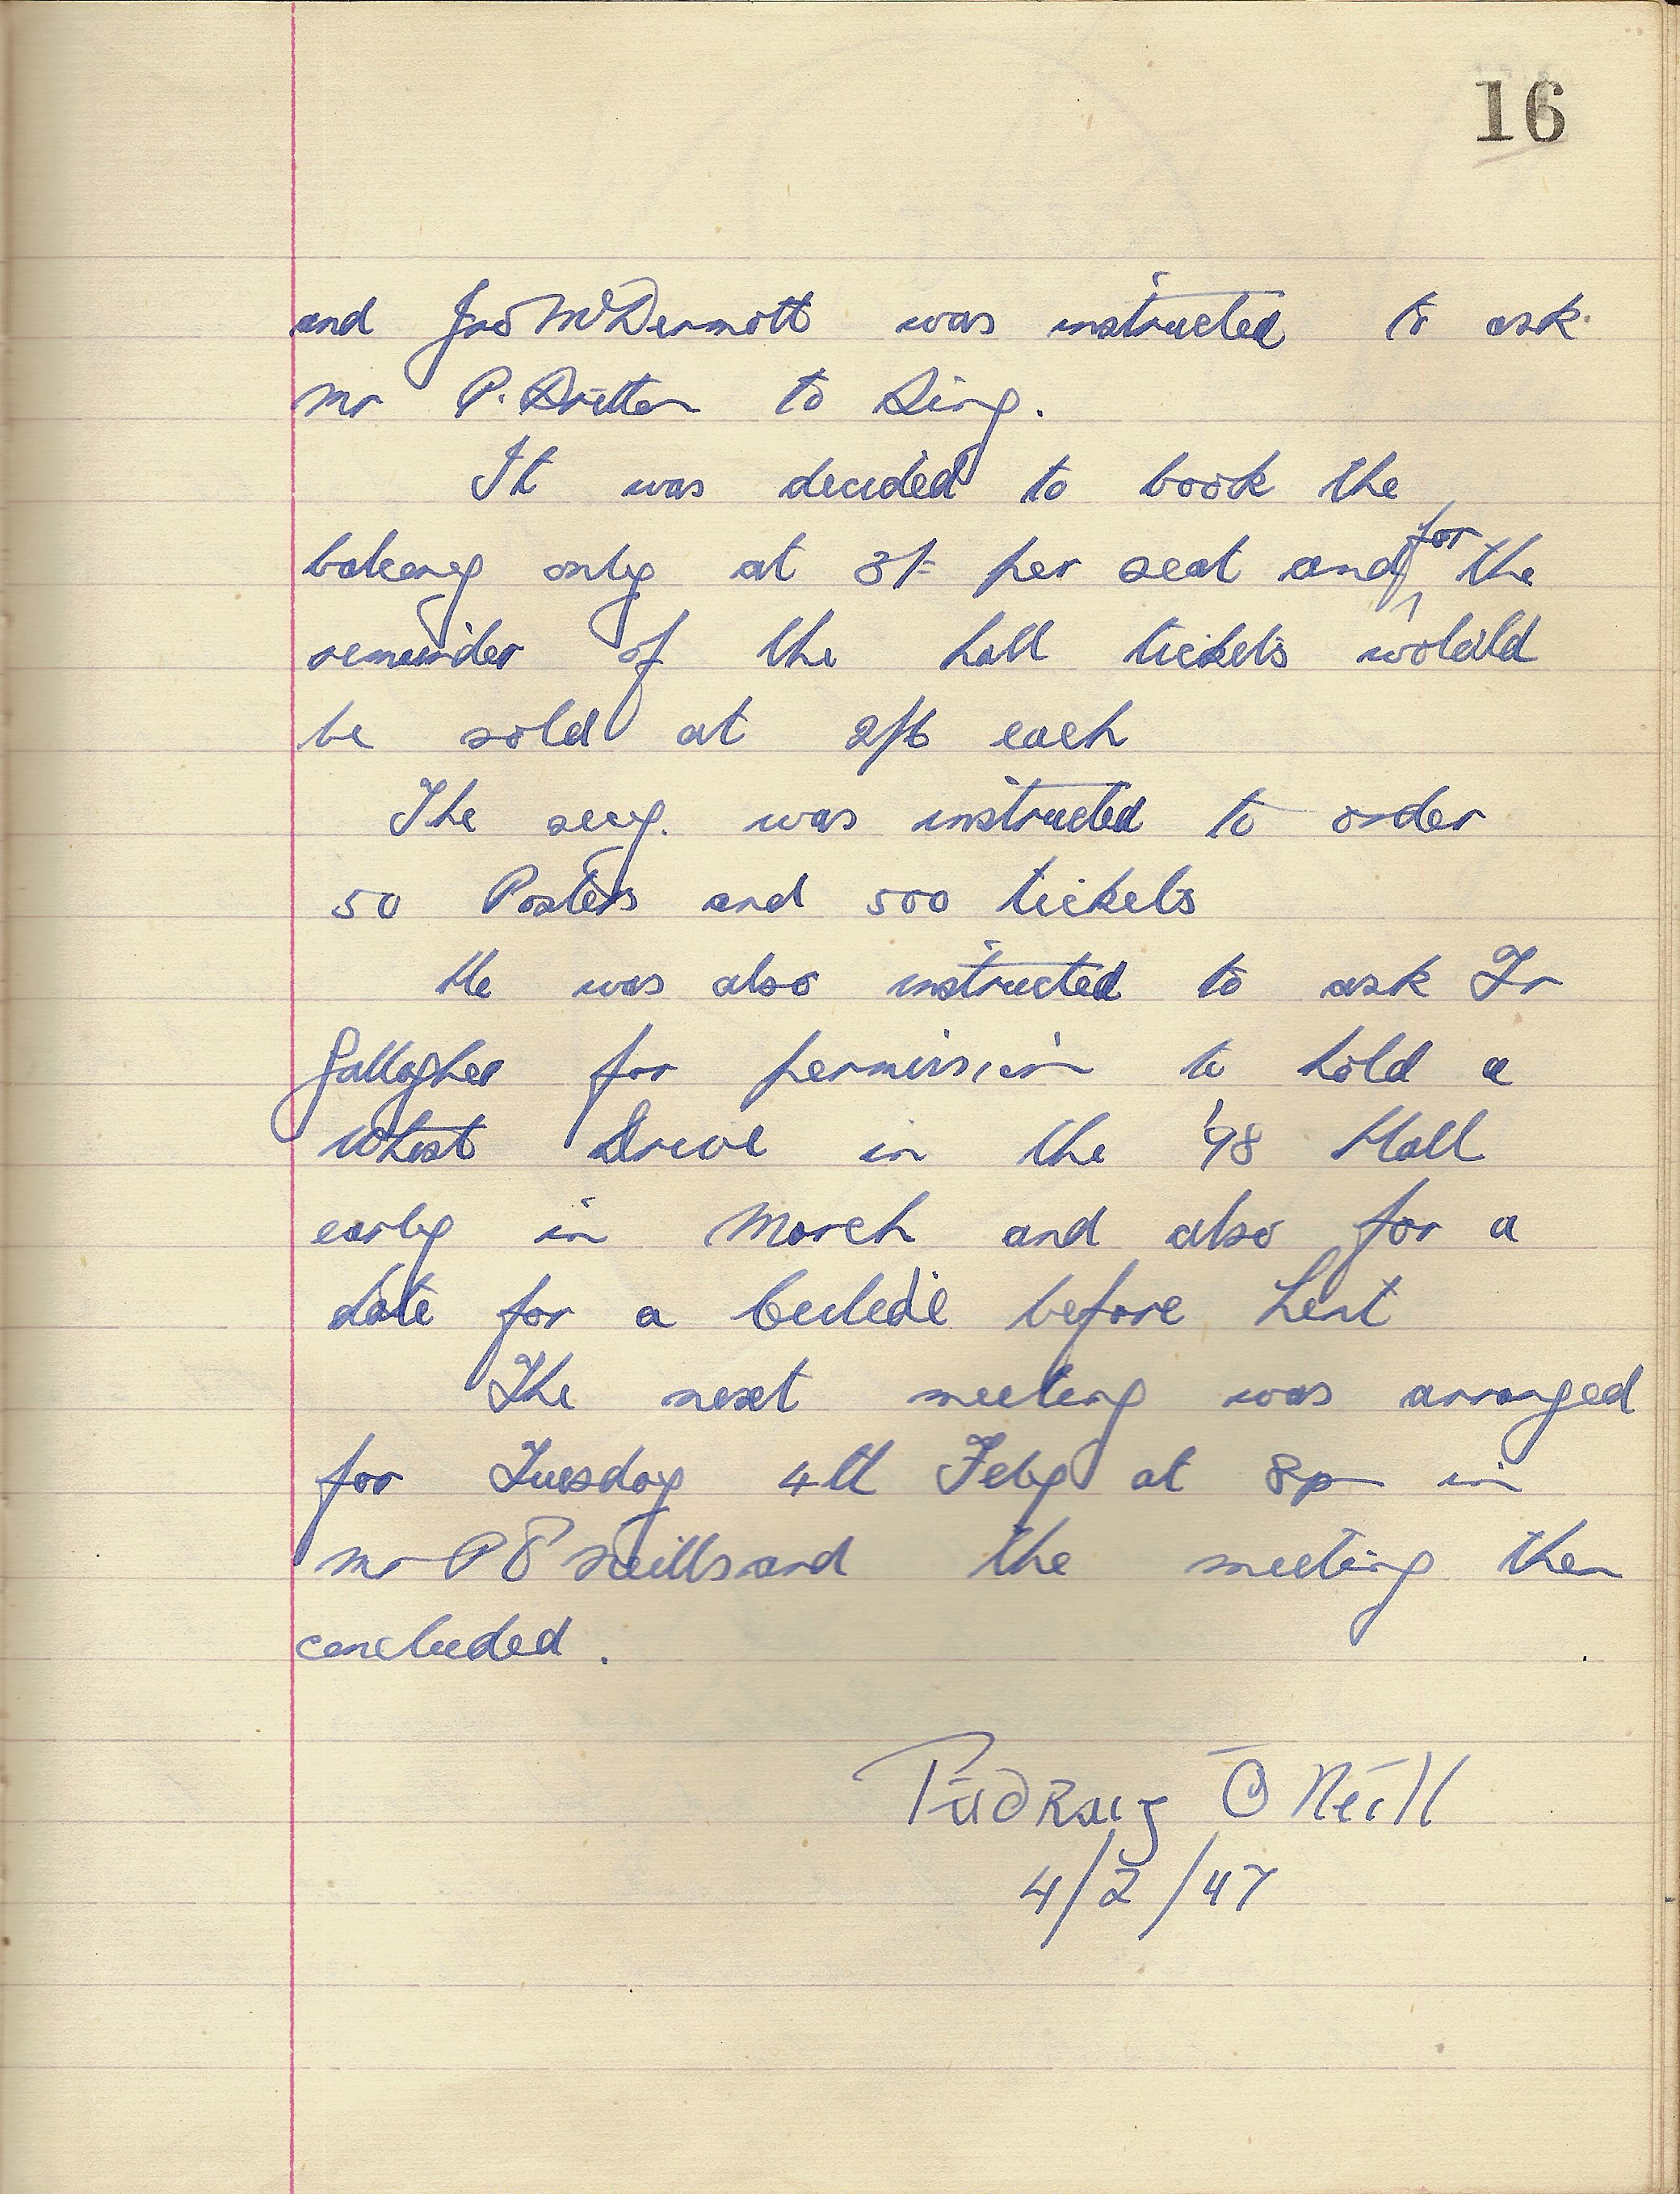 16
and Jno McDermott was instructed to ask
Mr P. to Sing.
It was decided to book the
balcony only at 3/- per seat and for the
remainder of the hall tickets would
be sold at 2/6 each
The secy. was instructed to order
50 Posters and 500 tickets
He was also instructed to ask Fr
Gallagher for permission to hold a
Whist Drive in the '98 Hall
early in March and also for a
date for a Ceilidé before Lent
The next meeting was arranged
for Tuesday 4th Feby at 8pm in
Mr P O'Neills and the meeting then
concluded.
Pádraig Ó Néill
4/2/47